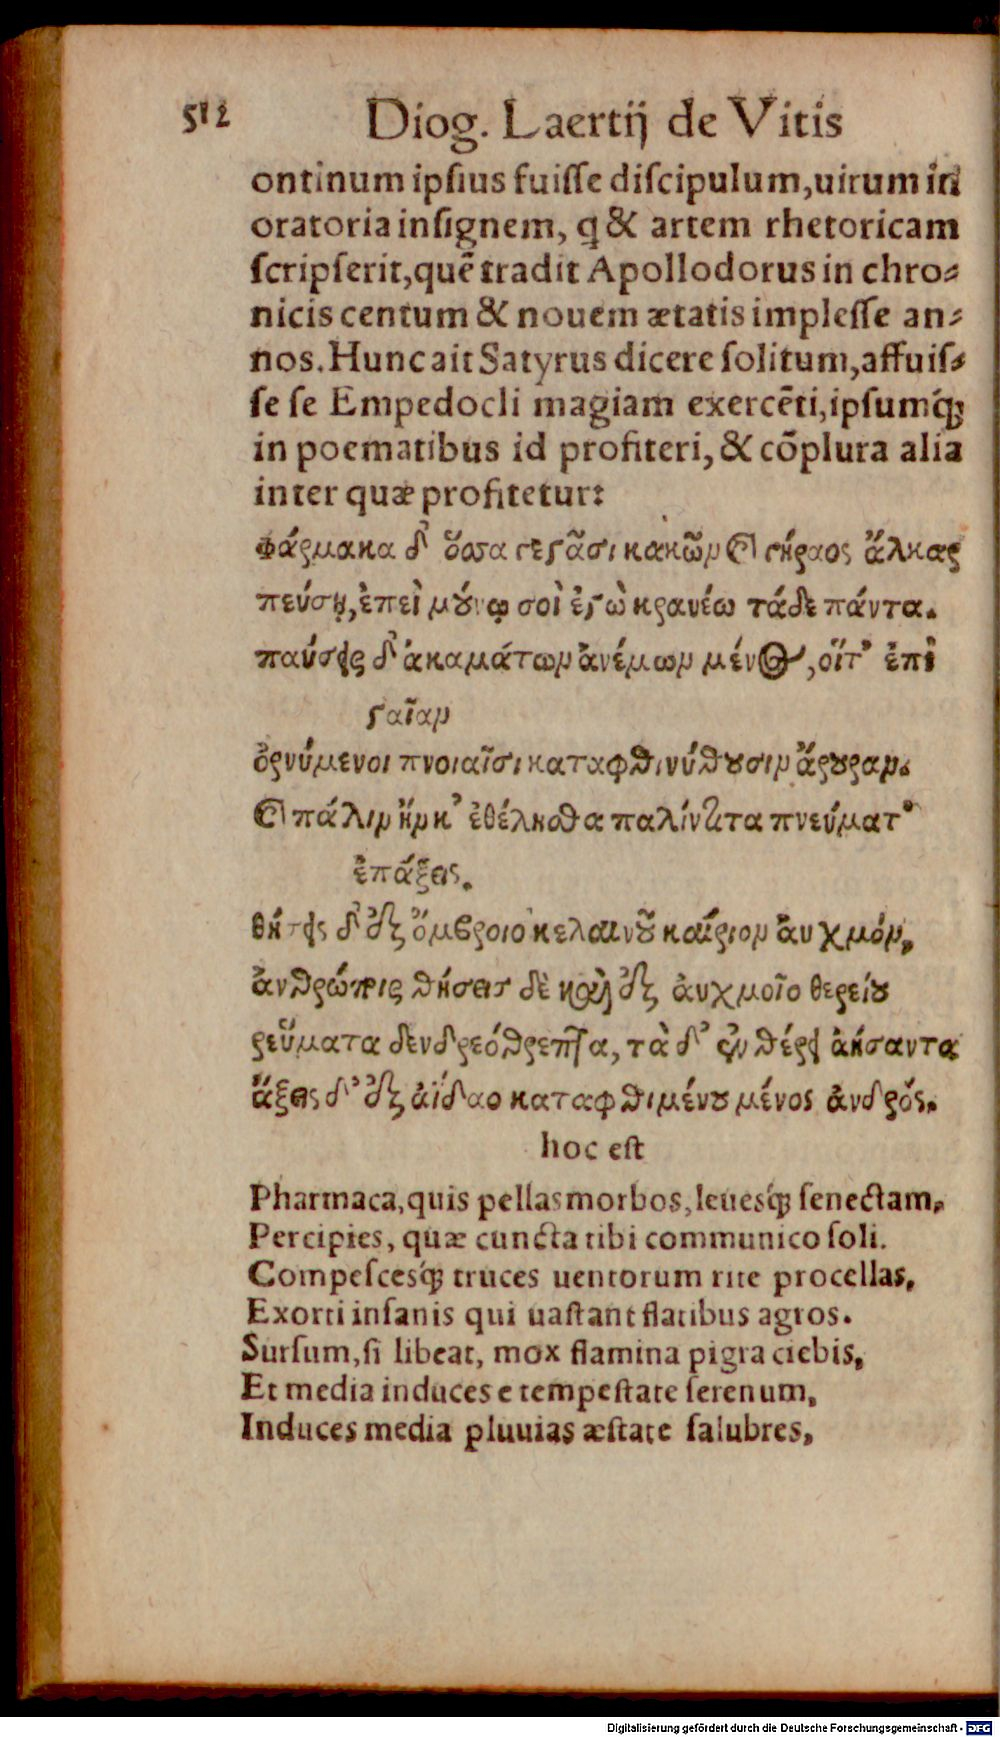 512 Diog. Laertij de Vitis
ontinum ipſius fuiſſe diſcipulum,uirum in
oratoria inſignem, ꝗ & artem rhetoricam
ſcripſerit,quẽ tradit Apollodorus in chro⸗
nicis centum & nouem ætatis impleſſe an⸗
nos.Hunc ait Satyrus dicere ſolitum,affuiſ⸗
ſe ſe Empedocli magiam exercẽti,ipſumq́;
in poematibus id profiteri, & cõplura alia
inter quæ profitetur:
φάρμακα δ' ὅσσα γεγᾶσι κακῶν καὶ γήραος ἄλκαρ
πεύσῃ,ἐπεὶ μούνῳ σοὶ ἐγὼ κρανέω τάδε πάντα.
παύσεις δ' ἀκαμάτων ἀνέμων μένος,οἵτ' ἐπὶ
γαῖαν
ὀρνύμενοι πνοιαῖσι καταφθινύθουσιν ἄρουραν.
καὶ πάλιν ἤν κ' ἐθέλησθα παλίντιτα πνεύματ'
ἐπάξεις.
θήσεις δ' ἐξ ὄμβροιο κελαινοῦ καίριον ἀυχμόν,
ἀνθρώποις θήσεις δὲ καὶ ἐξ ἀυχμοῖο θερείου
ρεύματα δενδρεόθρεπτα, τὰ δ' ἐν θέρει ἀήσαντα
ἄξεις δ' ἐξ ἀΐδαο καταφθιμένου μένος ἀνδρός.
hoc eſt
Pharmaca,quis pellas morbos,leuesq́; ſenectam,
Percipies, quæ cuncta tibi communico ſoli.
Compeſcesq́; truces uentorum rite procellas,
Exorti inſanis qui uaſtant flatibus agros.
Surſum,ſi libeat, mox flamina pigra ciebis,
Et media induces e tempeſtate ſerenum,
Induces media pluuias æſtate ſalubres,
Digitalisierung gefördert durch die Deutsche Forschungsgemeinschaft - DFG